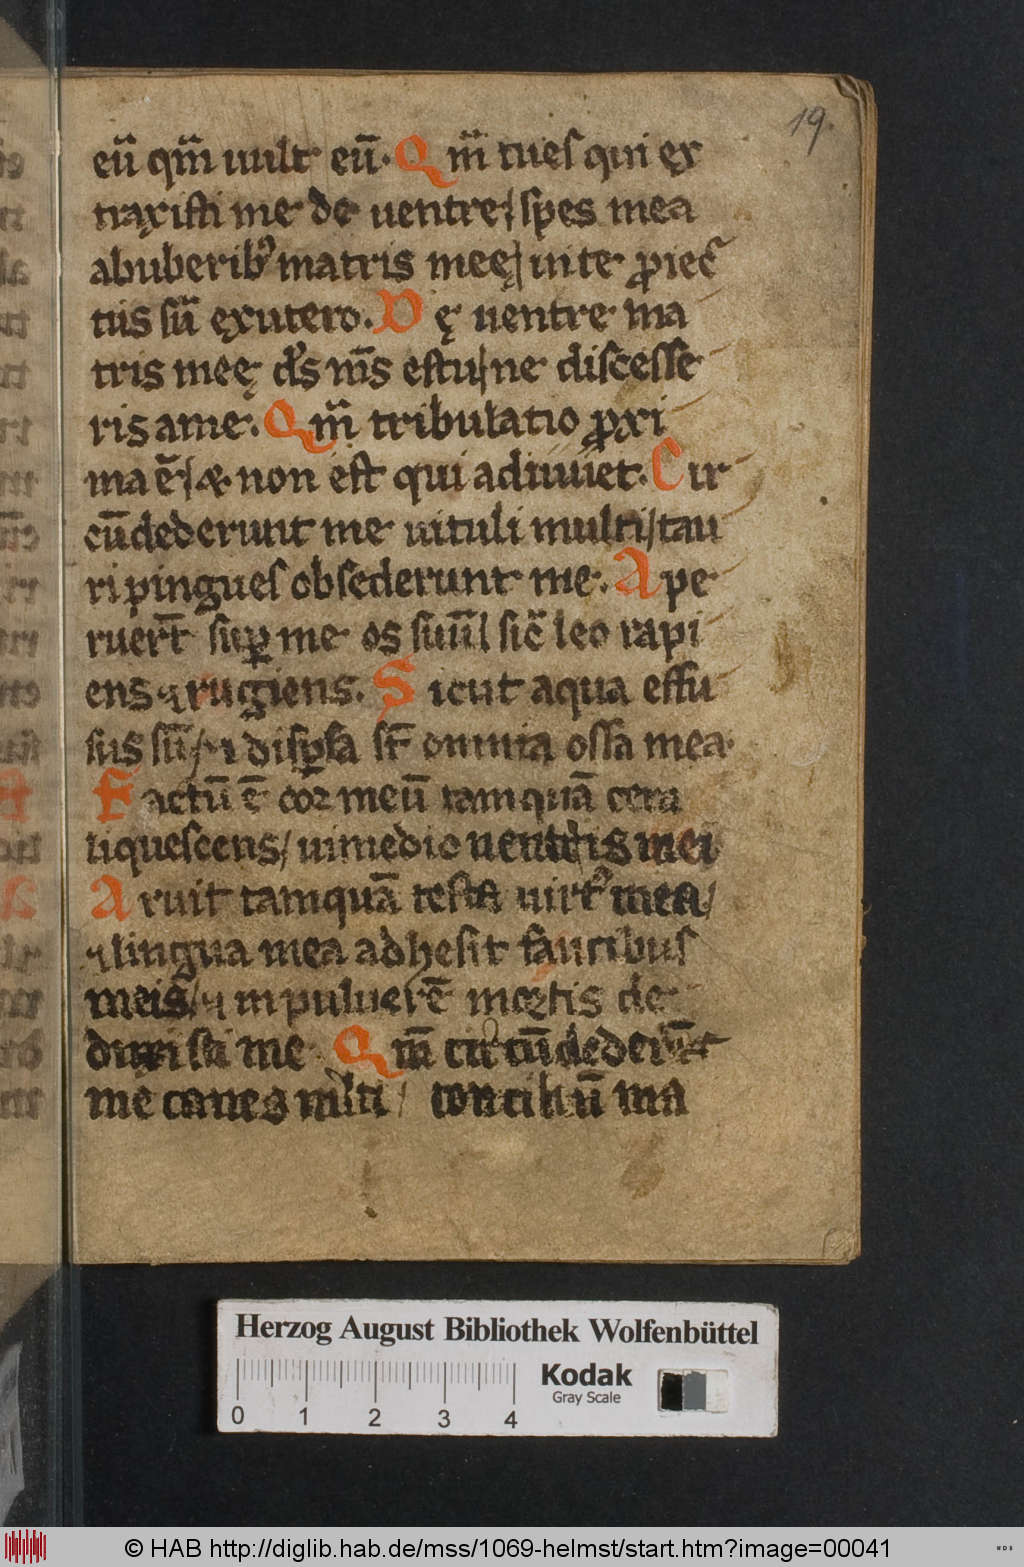 19.
eū qm̄ uult eū. Qm̄ tu es qui ex
traxisti me de uentre / spes mea
abuberibꝰ matris meę / in te ꝓiec̄
tus sū ęxutero. D ę uentre ma
tris meę ds̄ ms̄ estu / ne discesse
ris ame. Qm̄ tribulatio ꝓxi
ma ē / & non est qui adiuuet. Cir
cūdederunt me uituli multi / tau
ri pingues obsederunt me. Ape
ruer̄t suꝑ me os suū / sic̄ leo rapi
ens ⁊ rugiens. Sicut aqua effu
sus sū / ⁊ disꝑsa st̄ omnia ossa mea.
Factū ē cor meū tamquā cera
liquescens / in medio uentris mei
Aruit tamquā testa uirtꝰ mea /
⁊ lingua mea adhesit faucibus
meis / ⁊ in puluerē mortis de
duxisti me Qm̄ circūdeder̄t
me canes ml̄ti / conciliū ma
Herzog August Bibliothek Wolfenbüttel
Kodak
Gray Scale
0 1 2 3 4
© HAB http://diglib.hab.de/mss/1069-helmst/start.htm?image=00041